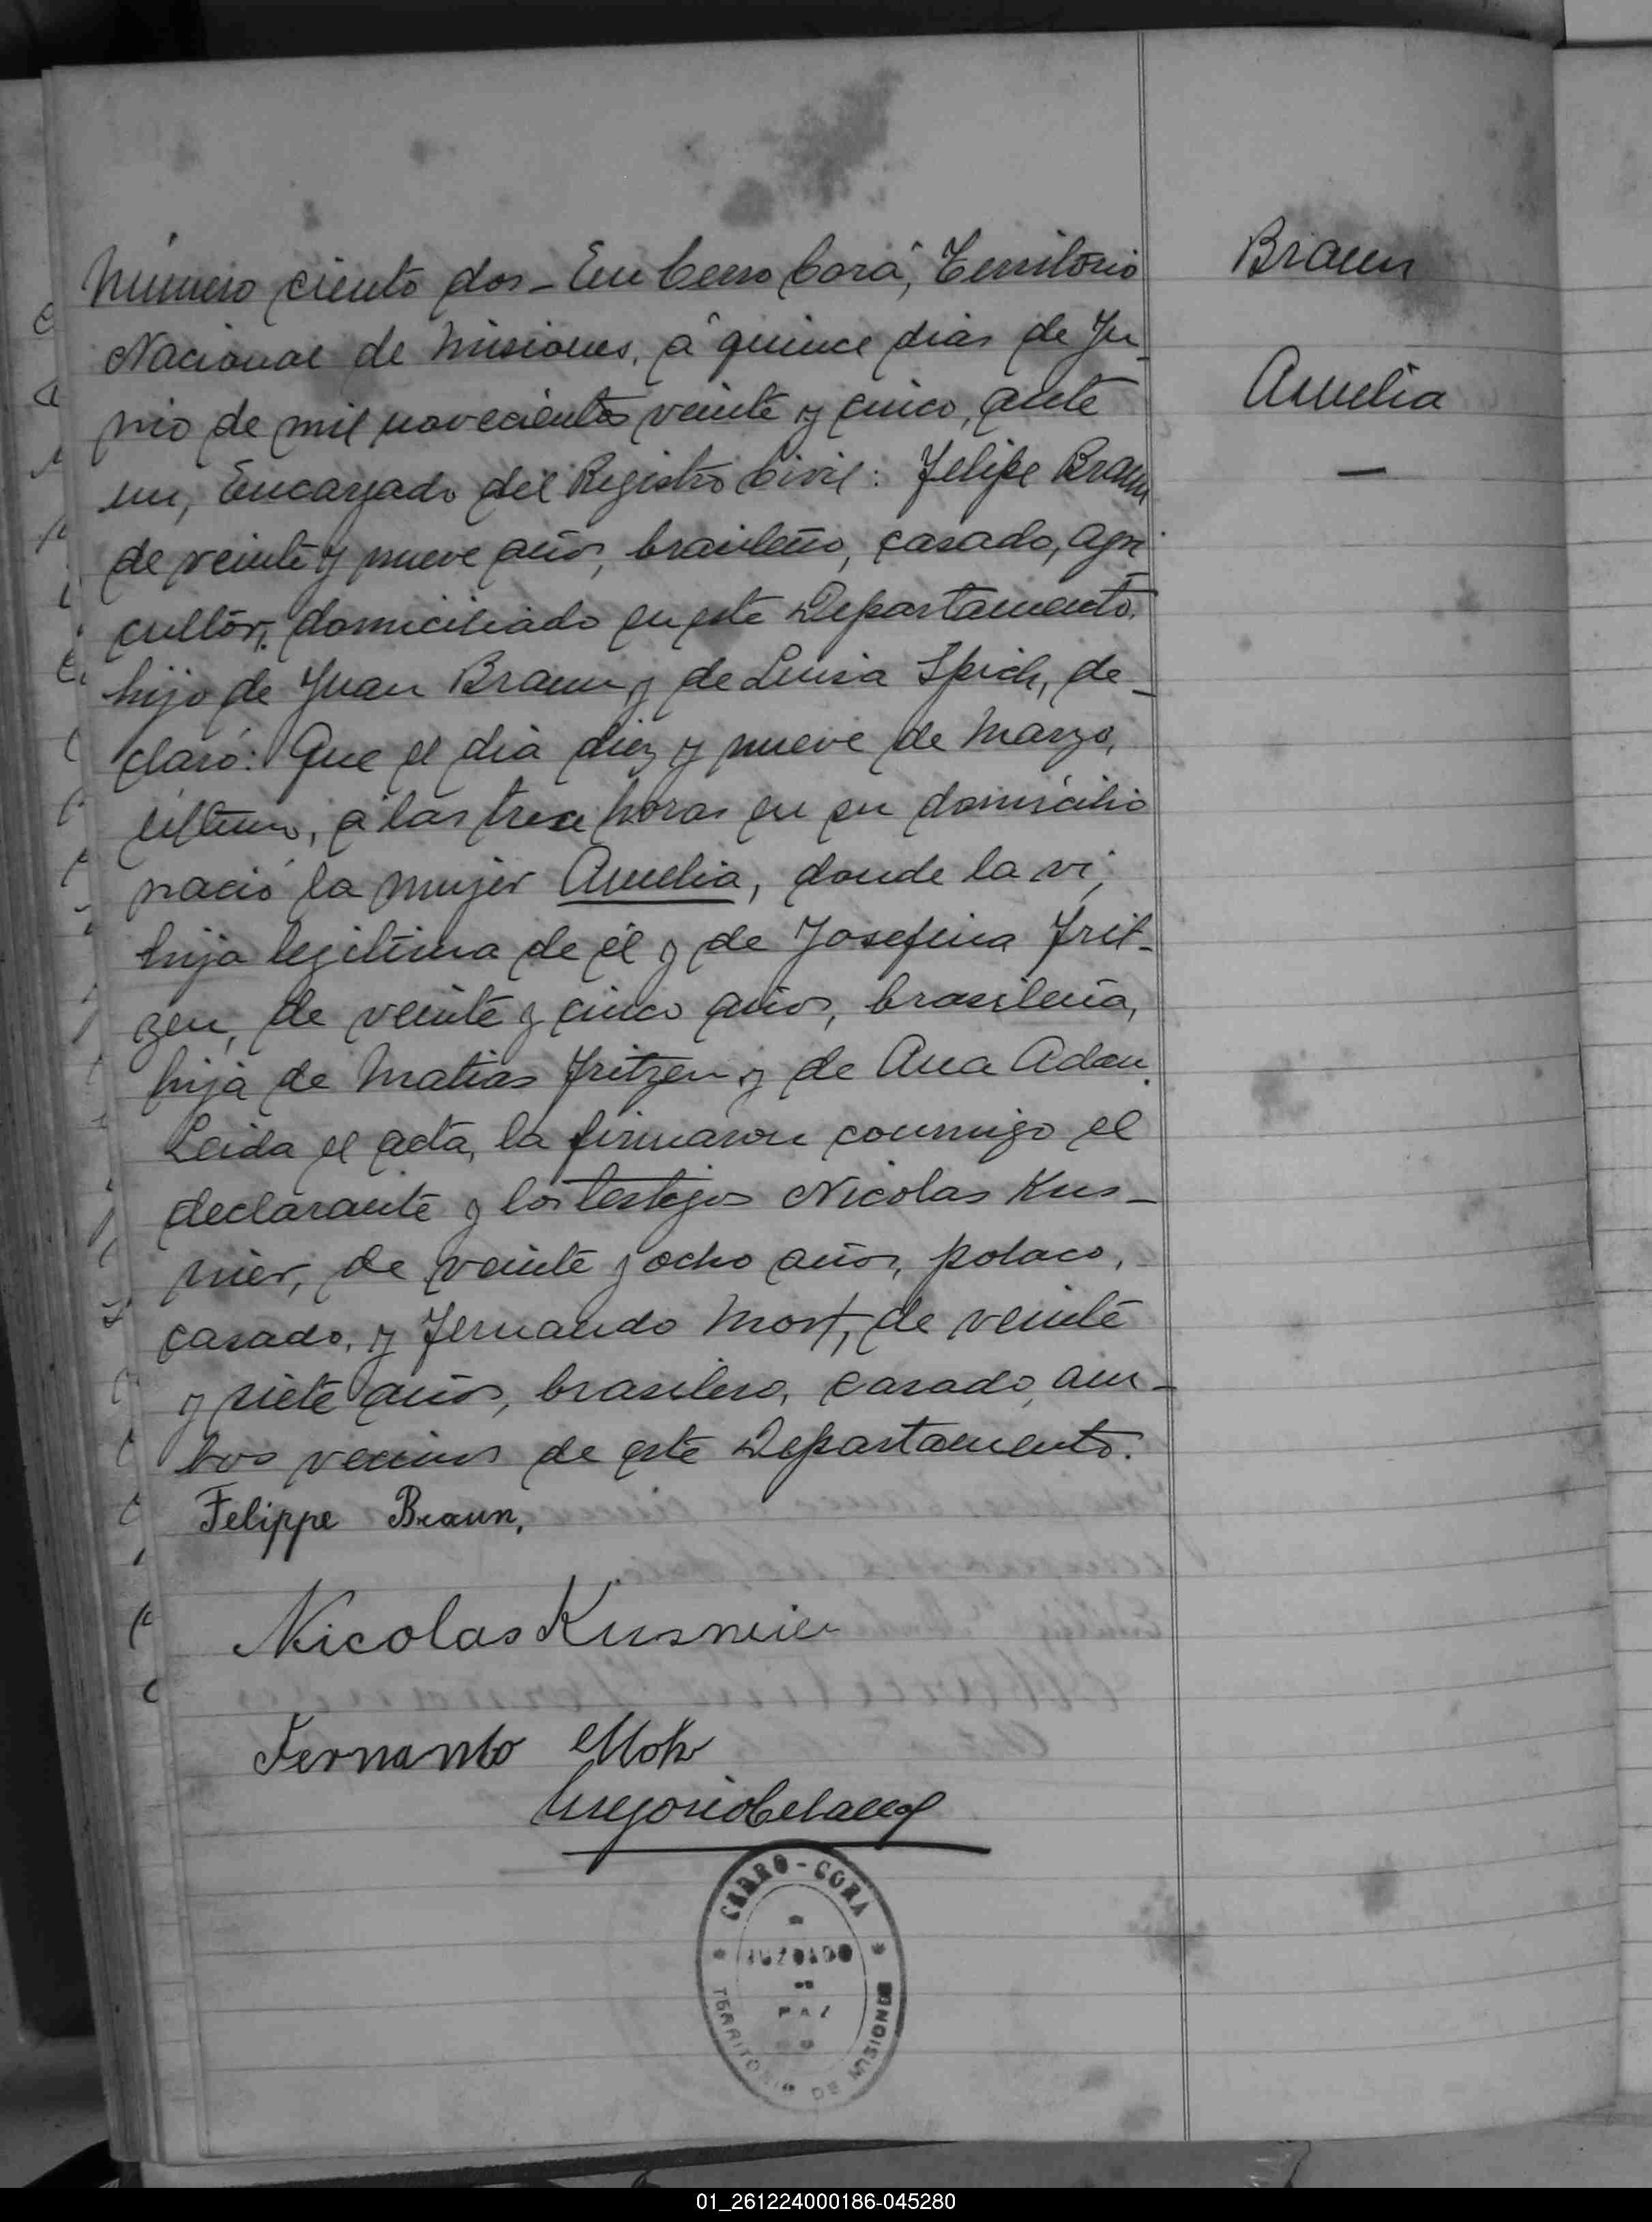 Número ciento dos - En Cerro Corá, Territorio
Braun
Nacional de Misiones, á quince dias de Ju-
Amelia
nio de mil novecientos veinte y cinco, ante
mi, Encargado del Registro Civil: Felipe Braun
de veinte y nueve años, brasileño, casado, agri-
cultor, domiciliado en este Departamento,
hijo de Juan Braun y de Luisa Spich, de-
claró: Que el dia diez y nueve de Marzo,
último, á las trece horas en su domicilio
nació la mujer Amelia, donde la vi,
hija legitima de él y de Josefina Frit-
zen, de veinte y cinco años, brasileña,
hija de Matias Fritzen y de Ana Adan.
Leida el acta, la firmaron conmigo el
declarante y los testigos Nicolas Kus-
nier, de veinte y ocho años, polaco,
casado, y Fernando Mort, de veinte
y siete años, brasilero, casado, am-
bos vecinos de este Departamento.
Felippe Braun.
Nicolas Kusnier
Fernando
CERRO-CORA
JUZGADO
DE
PAZ
TERRITORIO DE MISIONES
01_261224000186-045280